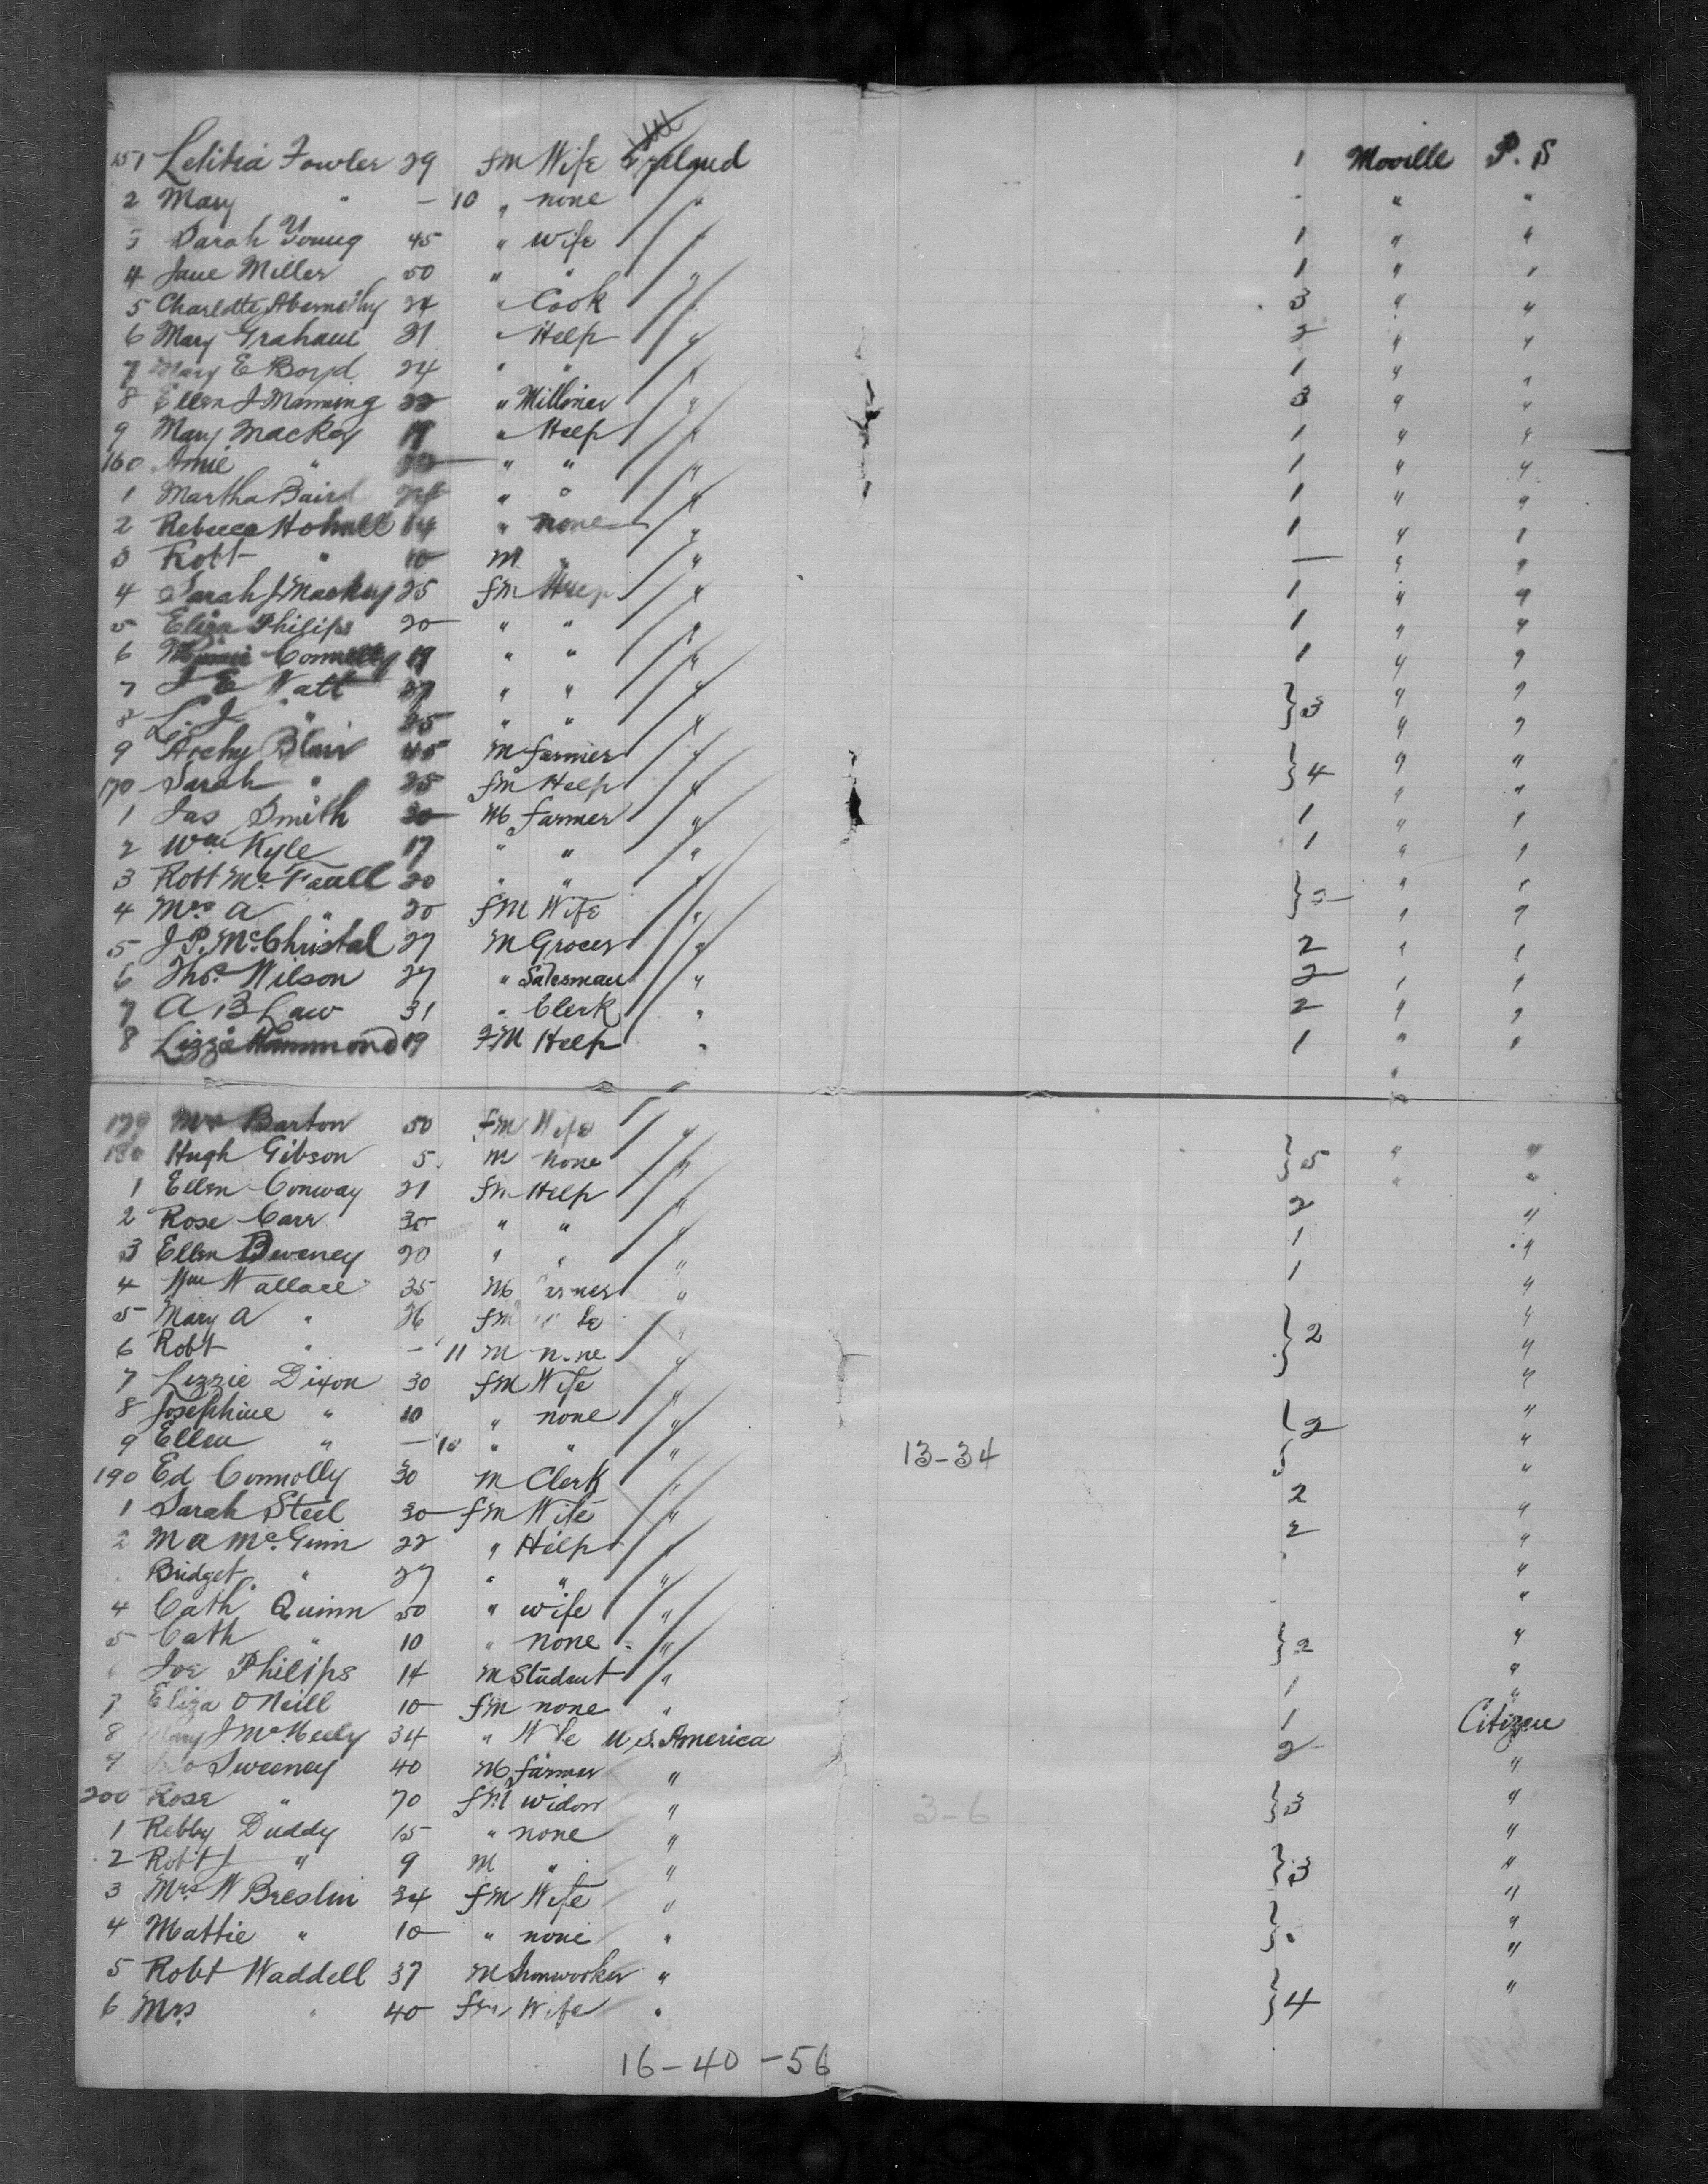 151 Letitia Fowler 29 fm Wife Ireland 1 Moville P. S
2 Mary " - 10 " none " - " "
3 Sarah Young 45 " wife " 1 " "
4 Jane Miller 50 " " " 1 " "
5 Charlotte Abernethy 24 " Cook " 3 " "
6 Mary Graham 31 " Help " 2 " "
7 Mary E Boyd 24 " " " 1 " "
8 Ellen J Manning 22 " Milliner " 3 " "
9 Mary Mackey 19 " Help " 1 " "
160 Amie " " " " 1 " "
1 Martha Baird " " " 1 " "
2 Rebecca 14 " none " 1 " "
3 Robt " 10 m " " — " "
4 Sarah J Mackey 25 fm Help " 1 " "
5 Eliza Philips 20 " " " 1 " "
6 Connolly 19 " " " 1 " "
7 J E Watt 27 " " " } 3 " "
8 L. J " 25 " " " " "
9 Archy Blair 45 m farmer " } 4 " "
170 Sarah " 25 fm Help " " "
1 Jas Smith 20 M farmer " 1 " "
2 Wm Kyle 17 " " " 1 " "
3 Robt Mc Faull 20 " " " } " "
4 Mrs A " 20 fm Wife " " "
5 J P. McChristal 27 m Grocer " 2 " "
6 Thos. Wilson 27 " Salesman " 2 " "
7 A B Law 31 " Clerk " 2 " "
8 Lizzie Hammond 19 FM Help " 1 " "
179 Mrs Barton 50 fm Wife "
180 Hugh Gibson 5 m none " } 5 " "
1 Ellen Conway 21 fm Help " " "
2 Rose Carr 30 " " " 2 "
3 Ellen Deveney 20 " " " 1 "
4 Wm Wallace 35 M " 1 "
5 Mary A " 26 fm " "
6 Robt " - 11 m none " } 2 "
7 Lizzie Dixon 30 fm Wife " "
8 Josephine " 10 " none " "
9 Ellen " — 10 " " " 13-34 } 2 "
190 Ed Connolly 30 m Clerk " "
1 Sarah Steel 30 fm Wife " 2 "
2 M A McGinn 22 " Help " 2 "
Bridget " 27 " " " "
4 Cath Quinn 50 " wife " "
5 Cath " 10 " none " } 2 "
Joe Philips 14 m Student " "
7 Eliza O Neill 10 fm none " 1 "
8 Mary J McNeely 34 " U. S. America 1 Citizen
9 Sweeney 40 M farmer " 2 "
200 Rose " 70 fm widow " 3-6 } 3 "
1 Rebby Duddy 15 " none " "
2 Robt J " 9 m " " } 3 "
3 Mrs W Breslin 34 fm Wife " "
4 Mattie " 10 " none " } "
5 Robt Waddell 37 m Ironworker " "
6 Mrs " 40 fm Wife " } 4 "
16-40-56